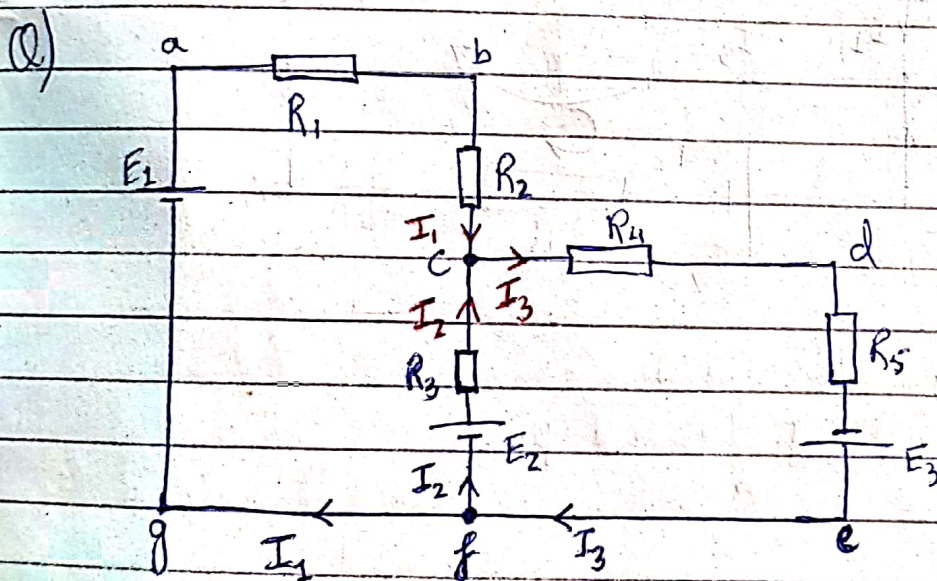 Q)
a
b
R1
E1
R2
I1
R4
d
c
I3
I2
R3
R5
E2
E3
I2
g
I1
f
I3
e